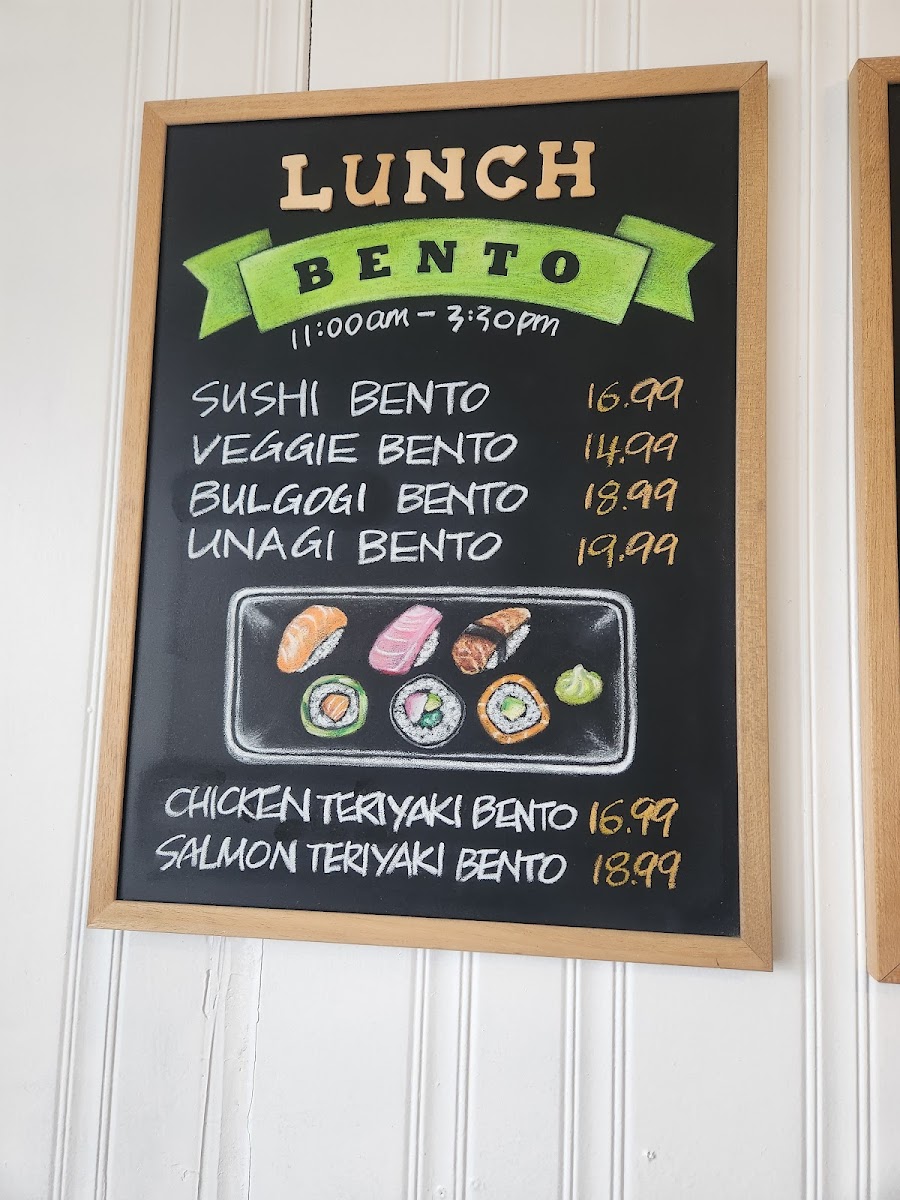 LUNCH
BENTO
11:00am - 3:30pm
SUSHI BENTO 16.99
VEGGIE BENTO 14.99
BULGOGI BENTO 18.99
UNAGI BENTO 19.99
CHICKEN TERIYAKI BENTO 16.99
SALMON TERIYAKI BENTO 18.99